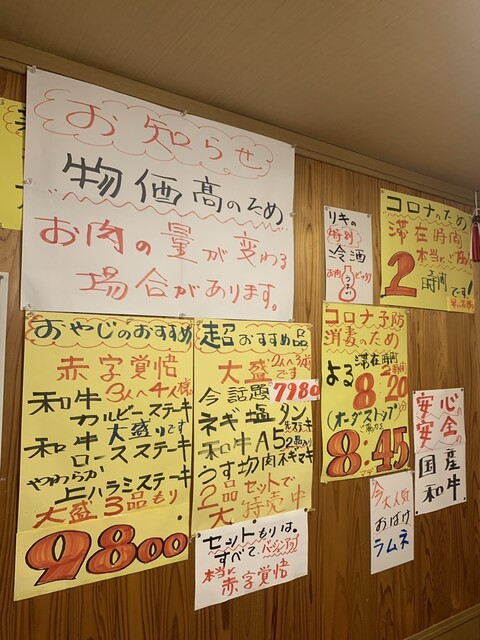 お知らせ
物価高のため
お肉の量が変わる
場合があります。
おやじのおすすめ
赤字覚悟
3人〜4人様
和牛
カルビーステーキ
和牛 大盛りです
ロースステーキ
やわらか
上ハラミステーキ
大盛3品もり
9800
超おすすめ品
大盛 2人〜3人前
です
今話題 7980
ネギ塩タン
先ステーキ
和牛A5 2品入り
うす切肉ネギマキ
2品セットで
大特売中
セットもりは。
すべて、バージョンアップ
本当に
赤字覚悟
リキの
特別
冷酒
お肉にピッタリ
うまい
コロナのため
滞在時間
本当にご
2時間です!
コロナ予防
消毒のため
滞在時間
2時間
よる8・20分
(オーダストップ)
8・45
安心の
安全の
国産
和牛
今大人気
おばけ
ラムネ